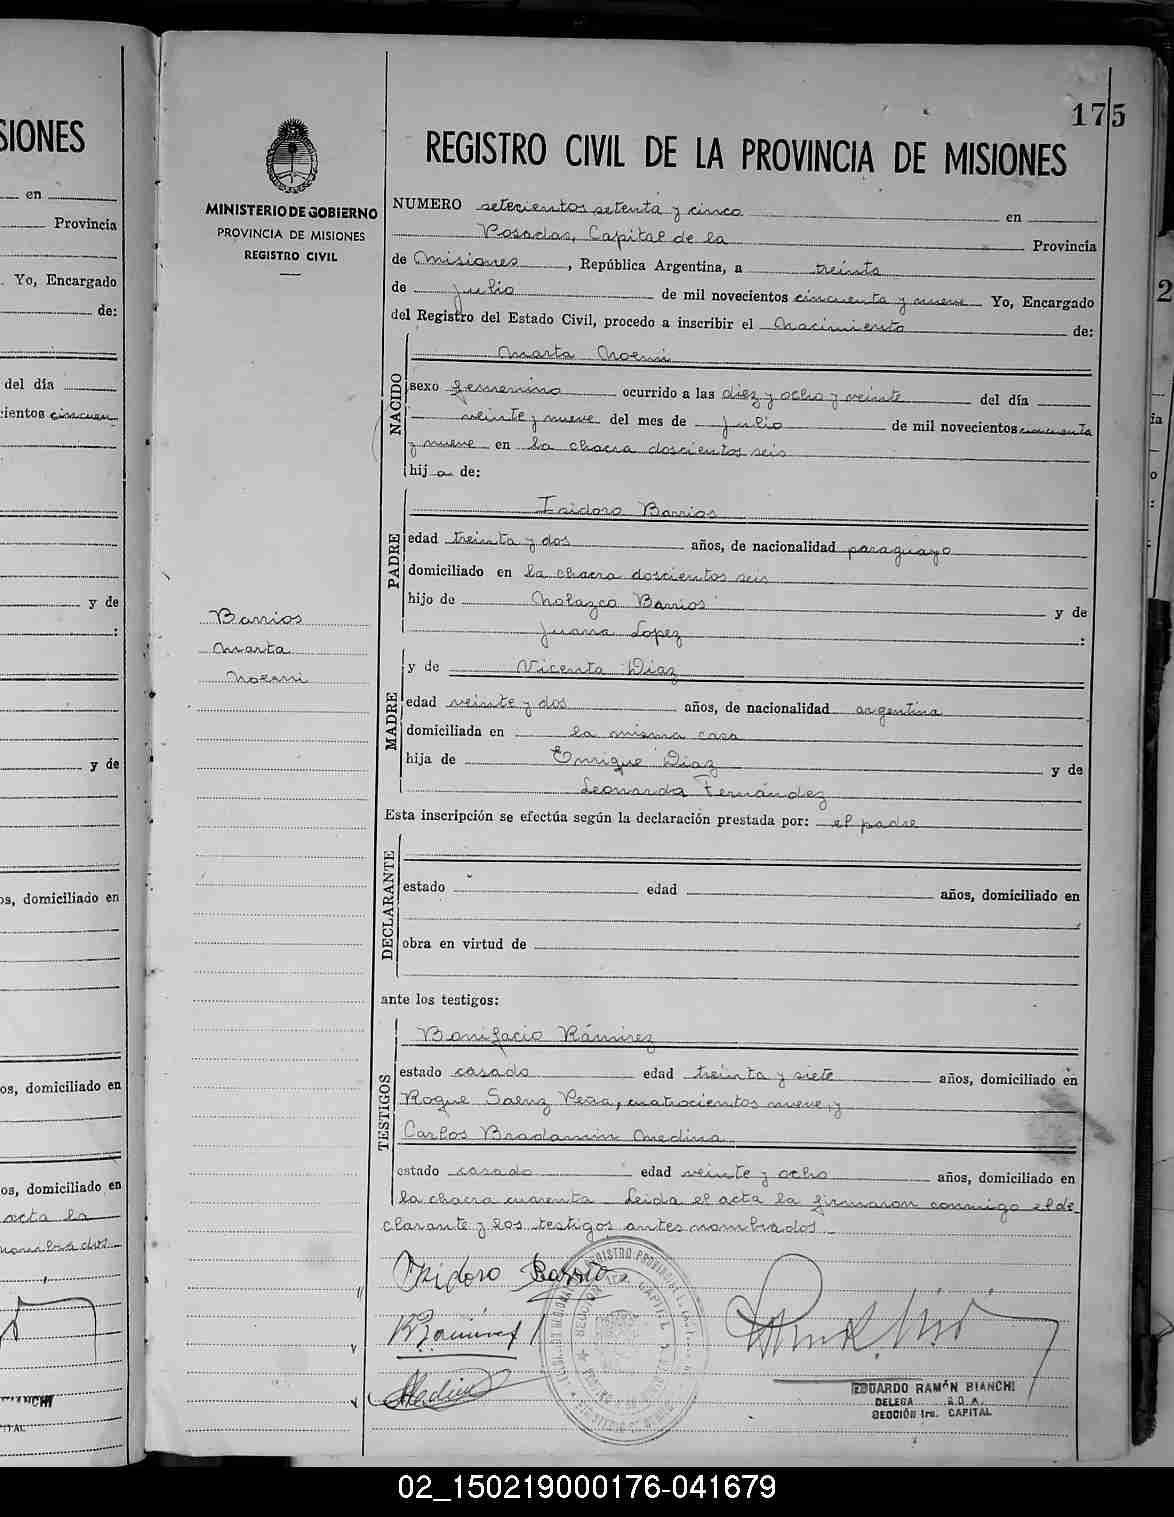 SIONES
en
Provincia
Yo, Encargado
de:
del día
cientos cincuen
y de
:
y de
os, domiciliado en
os, domiciliado en
os, domiciliado en
acta la
nombrados
BIANCHI
ITAL
175
REGISTRO CIVIL DE LA PROVINCIA DE MISIONES
MINISTERIO DE GOBIERNO
PROVINCIA DE MISIONES
REGISTRO CIVIL
Barrios
Marta
Noemi
NUMERO setecientos setenta y cinco en
Posadas, Capital de la Provincia
de Misiones, República Argentina, a treinta
de julio de mil novecientos cincuenta y nueve Yo, Encargado
del Registro del Estado Civil, procedo a inscribir el Nacimiento de:
NACIDO
Marta Noemi
sexo femenino ocurrido a las diez y ocho y veinte del día
veinte y nueve del mes de julio de mil novecientos cincuenta
y nueve en la chacra doscientos seis
hija de:
PADRE
Isidoro Barrios
edad treinta y dos años, de nacionalidad paraguayo
domiciliado en la chacra doscientos seis
hijo de Nolazco Barrios y de
Juana Lopez :
MADRE
y de Vicenta Diaz
edad veinte y dos años, de nacionalidad argentina
domiciliada en la misma casa
hija de Enrique Diaz y de
Leonarda Fernández
Esta inscripción se efectúa según la declaración prestada por: el padre
DECLARANTE
estado edad años, domiciliado en
obra en virtud de
ante los testigos:
TESTIGOS
Bonifacio Rámirez
estado casado edad treinta y siete años, domiciliado en
Roque Saenz Peña, cuatrocientos nueve, y
Carlos Bradamin Medina
estado casado edad veinte y ocho años, domiciliado en
la chacra cuarenta. Leida el acta la firmaron conmigo el de-
clarante y los testigos antes nombrados.
Isidoro Barrios
BRamirez
CMedina
SECCION 1ra. CAPITAL
EDUARDO RAMÓN BIANCHI
SECCIÓN 1ra. CAPITAL
02_150219000176-041679